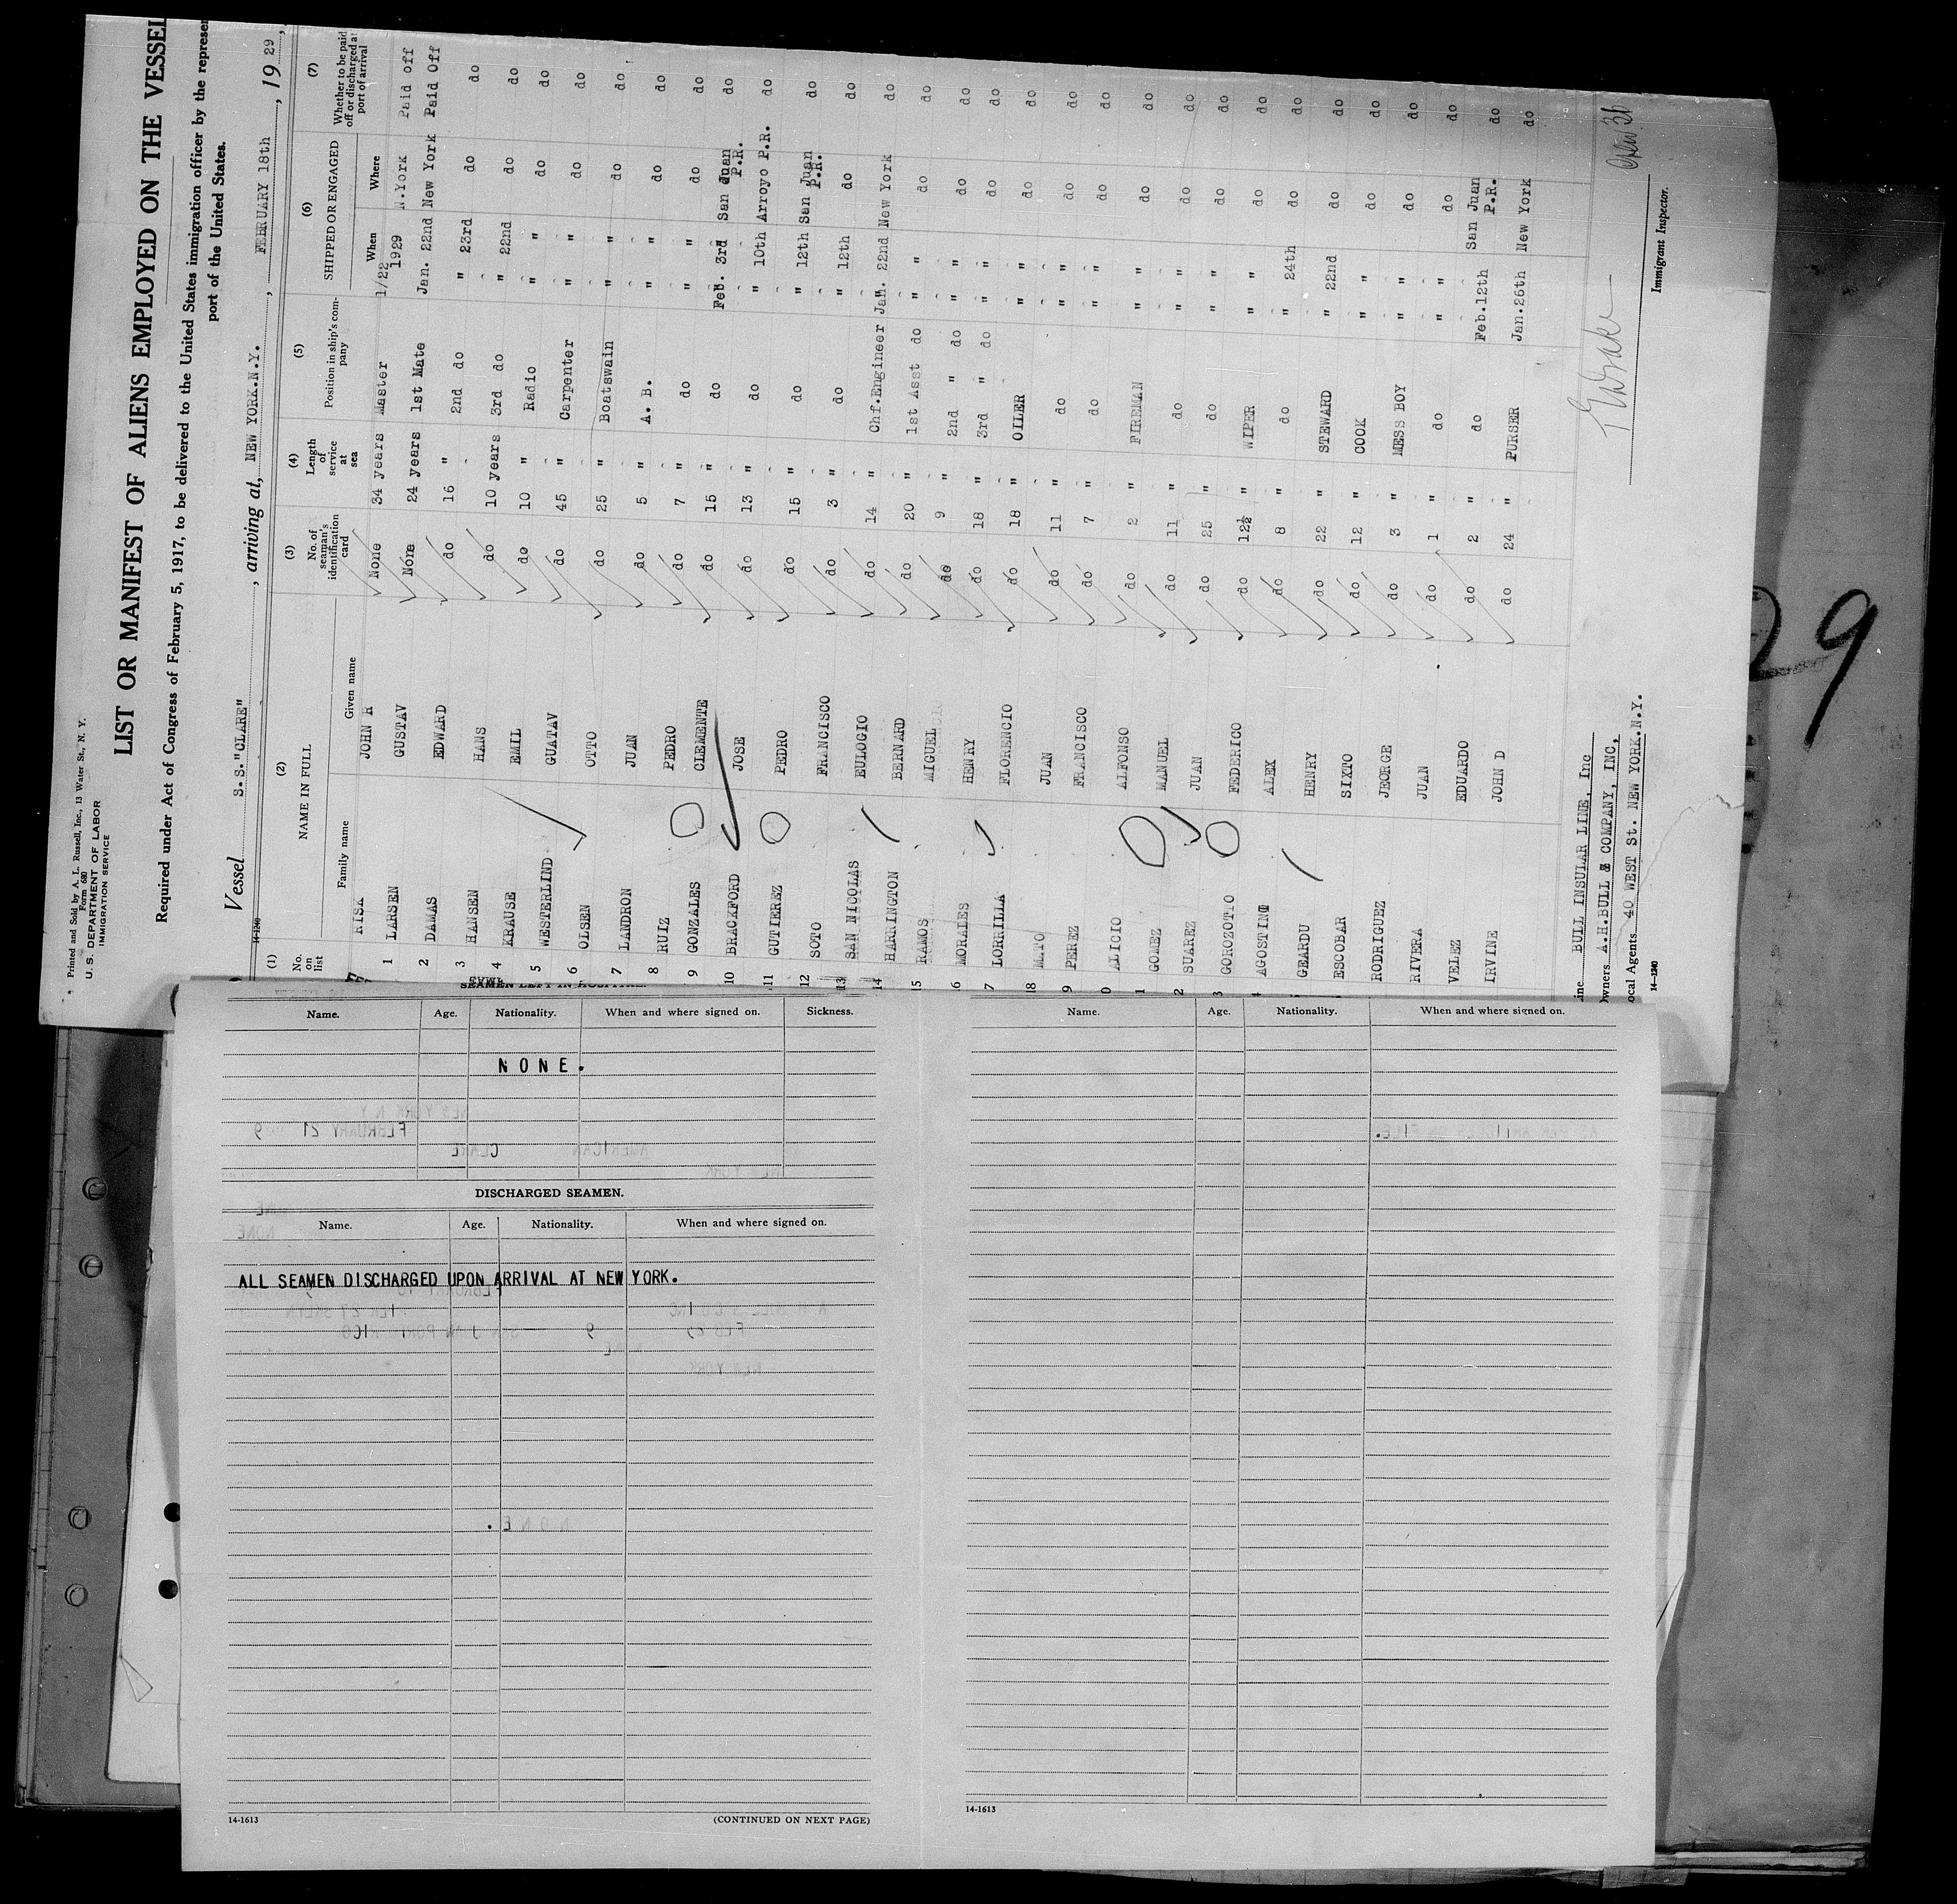 Printed and Sold by A. L. Russell, Inc., 13 Water St., N. Y.
Form 680
U. S. DEPARTMENT OF LABOR
IMMIGRATION SERVICE
LIST OR MANIFEST OF ALIENS EMPLOYED ON THE VESSEL
Required under Act of Congress of February 5, 1917, to be delivered to the United States immigration officer by the represen
port of the United States.
Vessel S.S."CLARE", arriving at, NEW YORK.N.Y., FEBRUARY 18th, 1929,
14-1240
(1) (2) (3) (4) (5) (6) (7)
No. on list NAME IN FULL No. of seaman's identification card Length of service at sea Position in ship's company SHIPPED OR ENGAGED Whether to be paid off or discharged at port of arrival
Family name Given name When Where
RISK JOHN R None 34 years Master 1/22 1929 N.York Paid off
1 LARSEN GUSTAV None 24 years 1st Mate Jan. 22nd New York Paid Off
2 DAMAS EDWARD do 16 " 2nd do " 23rd do do
3 HANSEN HANS do 10 years 3rd do " 22nd do do
4 KRAUSE EMIL do 10 " Radio " " do do
5 WESTERLIND GUATAV do 45 " Carpenter " " do do
6 OLSEN OTTO do 25 " Boatswain " " do do
7 LANDRON JUAN do 5 " A. B. " " do do
8 RUIZ PEDRO do 7 " do " " do do
9 GONZALES CLEMENTE do 15 " do Feb. 3rd San Juan P.R. do
10 BRACKFORD JOSE do 13 " do " 10th Arroyo P.R. do
11 GUTIEREZ PEDRO do 15 " do " 12th San Juan P.R. do
12 SOTO FRANCISCO do 3 " do " 12th do do
13 SAN NICOLAS EULOGIO do 14 " Chf.Engineer Jan. 22nd New York do
14 HARRINGTON BERNARD do 20 " 1st Asst do " " do do
15 RAMOS MIGUEL do 9 " 2nd " do " " do do
6 MORALES HENRY do 18 " 3rd " do " " do do
7 LORRILLA FLORENCIO do 18 " OILER " " do do
18 JUAN do 11 " do " " do do
9 PEREZ FRANCISCO do 7 " do " " do do
0 ALICIO ALFONSO do 2 " FIREMAN " " do do
1 GOMEZ MANUEL do 11 " do " " do do
2 SUAREZ JUAN do 25 " do " " do do
3 GOROZOTTO FEDERICO do 12½ " WIPER " " do do
4 AGOSTINI ALEX do 8 " do " 24th do do
GEARDU HENRY do 22 " STEWARD " 22nd do do
ESCOBAR SIXTO do 12 " COOK " " do do
RODRIGUEZ JEORGE do 3 " MESS BOY " " do do
RIVERA JUAN do 1 " do " " do do
VELEZ EDUARDO do 2 " do Feb.12th San Juan P.R. do
IRVINE JOHN D do 24 " PURSER Jan.26th New York do
ine BULL INSULAR LINE, Inc
Owners A.H.BULL & COMPANY, INC,
ocal Agents 40 WEST St. NEW YORK.N.Y.
Immigrant Inspector.
14-1240
29
SEAMEN LEFT IN HOSPITAL.
Name. Age. Nationality. When and where signed on. Sickness.
NONE.
DISCHARGED SEAMEN.
Name. Age. Nationality. When and where signed on.
ALL SEAMEN DISCHARGED UPON ARRIVAL AT NEW YORK.
14-1613
(CONTINUED ON NEXT PAGE)
Name. Age. Nationality. When and where signed on.
14-1613